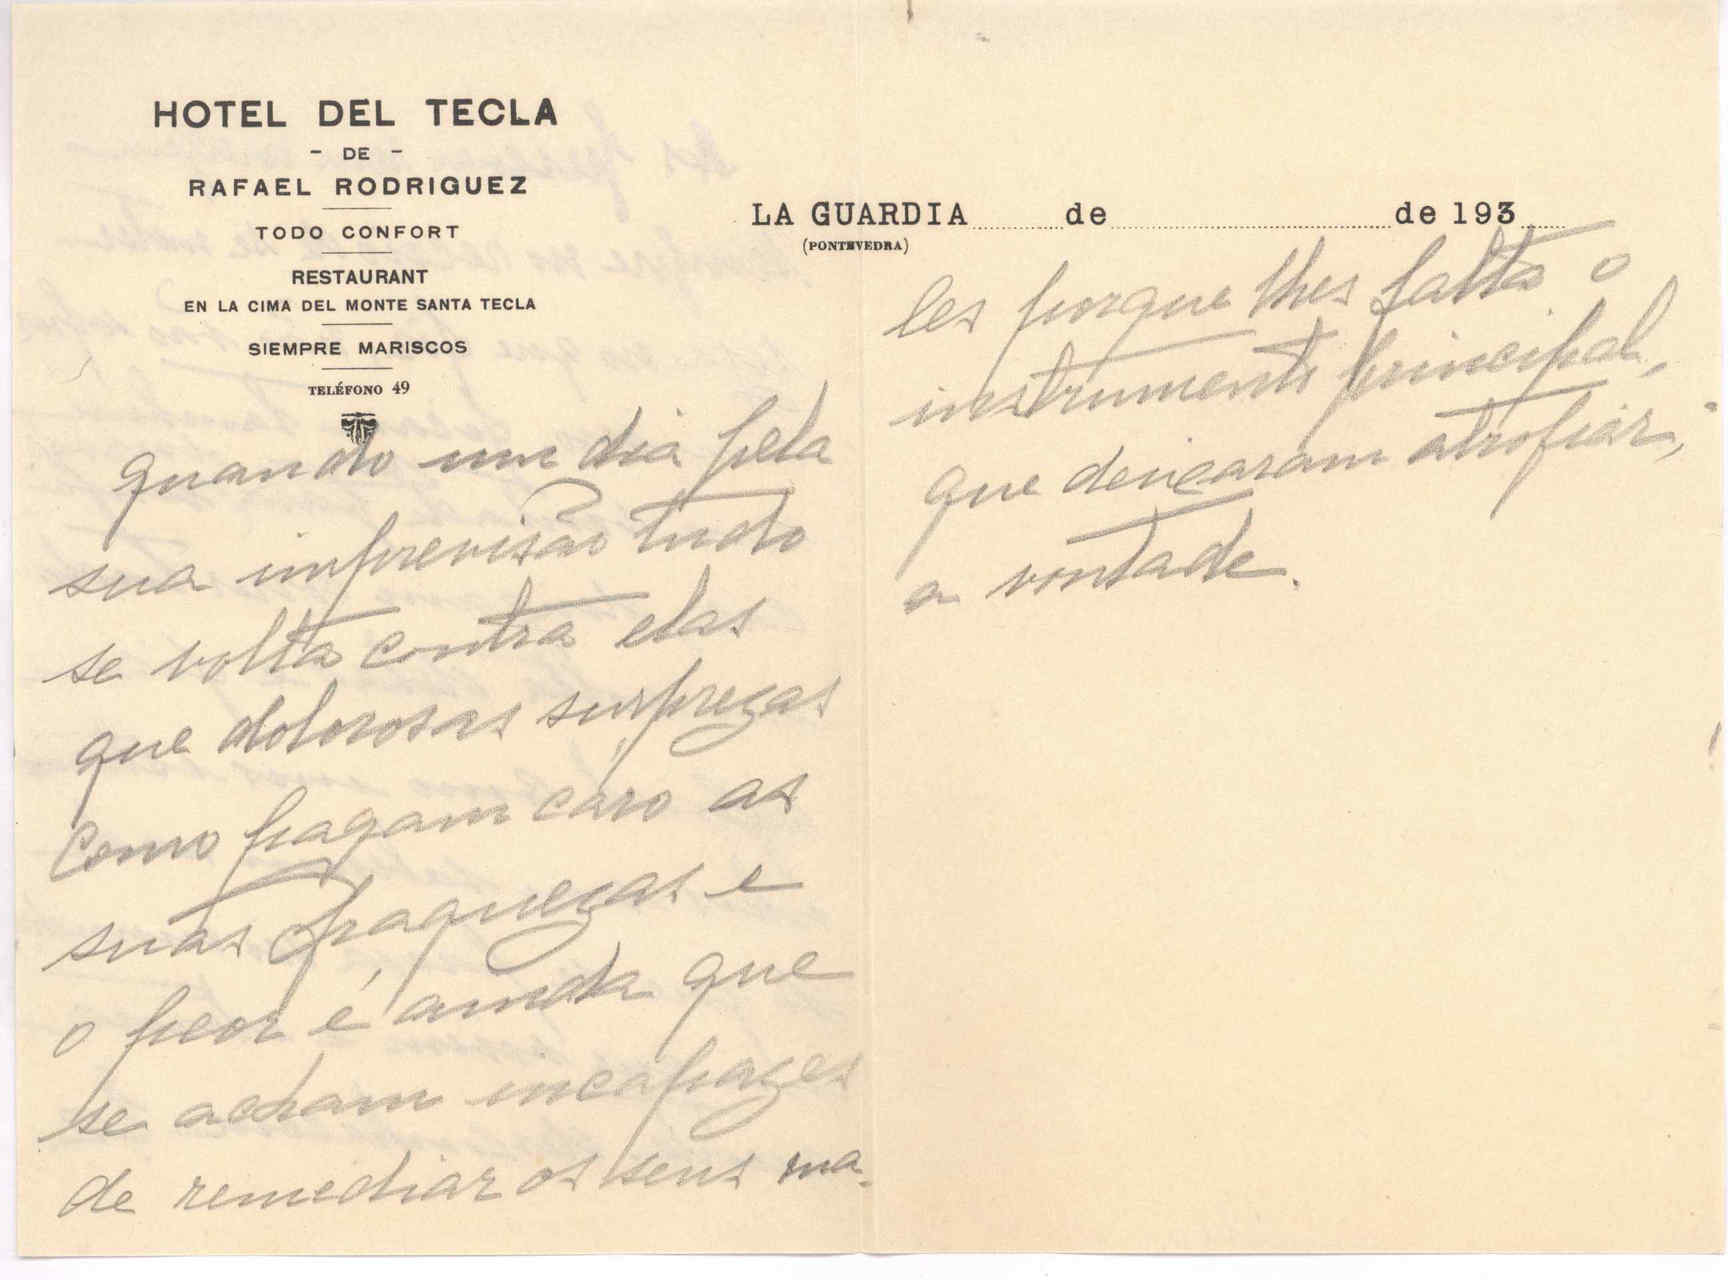 HOTEL DEL TECLA
- DE -
RAFAEL RODRIGUEZ
TODO CONFORT
RESTAURANT
EN LA CIMA DEL MONTE SANTA TECLA
SIEMPRE MARISCOS
TELÉFONO 49
quando um dia pela
sua imprevisão tudo
se volta contra elas
que dolorosas surprezas
Como pagam caro as
suas fraquezas e
o peor é ainda que
se acham incapazes
de remediar os seus ma-
LA GUARDIA de de 193
(PONTEVEDRA)
les porque lhes falta o
instrumento principal,
que deixaram atrofiar,
a vontade.